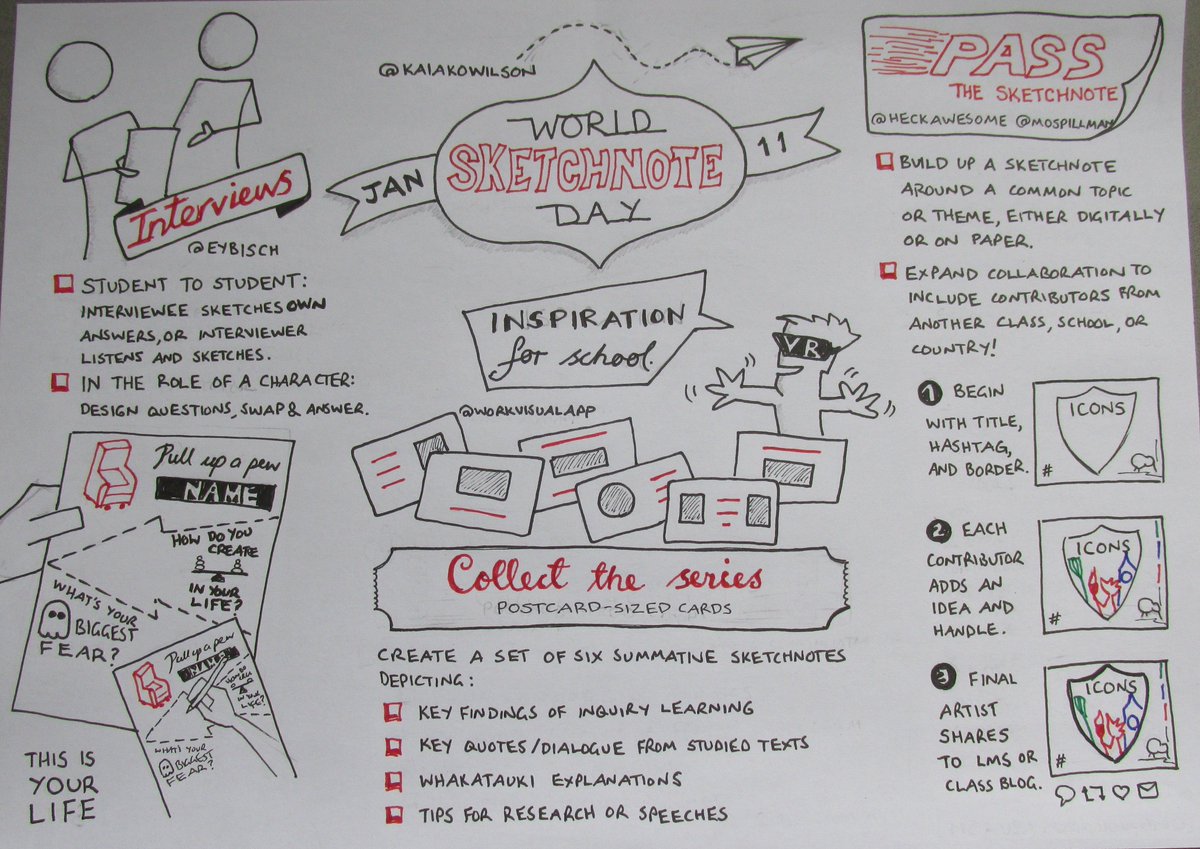 @KAIAKOWILSON
WORLD
SKETCHNOTE
DAY
JAN
11
INSPIRATION
for school.
VR
Interviews
@EYBISCH
STUDENT TO STUDENT:
INTERVIEWEE SKETCHES OWN
ANSWERS, OR INTERVIEWER
LISTENS AND SKETCHES.
IN THE ROLE OF A CHARACTER:
DESIGN QUESTIONS, SWAP & ANSWER.
Pull up a pew
NAME
HOW DO YOU
CREATE
IN YOUR
LIFE?
WHAT'S YOUR
BIGGEST
FEAR?
Pull up a pew
NAME
HOW DO
YOU
IN YOUR
LIFE?
WHAT'S YOUR
BIGGEST
FEAR?
THIS IS
YOUR
LIFE
@WORKVISUALAPP
Collect the series
POSTCARD-SIZED CARDS
CREATE A SET OF SIX SUMMATIVE SKETCHNOTES
DEPICTING:
KEY FINDINGS OF INQUIRY LEARNING
KEY QUOTES/DIALOGUE FROM STUDIED TEXTS
WHAKATAUKI EXPLANATIONS
TIPS FOR RESEARCH OR SPEECHES
PASS
THE SKETCHNOTE
@HECKAWESOME @MOSPILLMAN
BUILD UP A SKETCHNOTE
AROUND A COMMON TOPIC
OR THEME, EITHER DIGITALLY
OR ON PAPER.
EXPAND COLLABORATION TO
INCLUDE CONTRIBUTORS FROM
ANOTHER CLASS, SCHOOL, OR
COUNTRY!
1 BEGIN
WITH TITLE,
HASHTAG,
AND BORDER.
ICONS
#
2 EACH
CONTRIBUTOR
ADDS AN
IDEA AND
HANDLE.
ICONS
#
3 FINAL
ARTIST
SHARES
TO LMS OR
CLASS BLOG.
ICONS
#